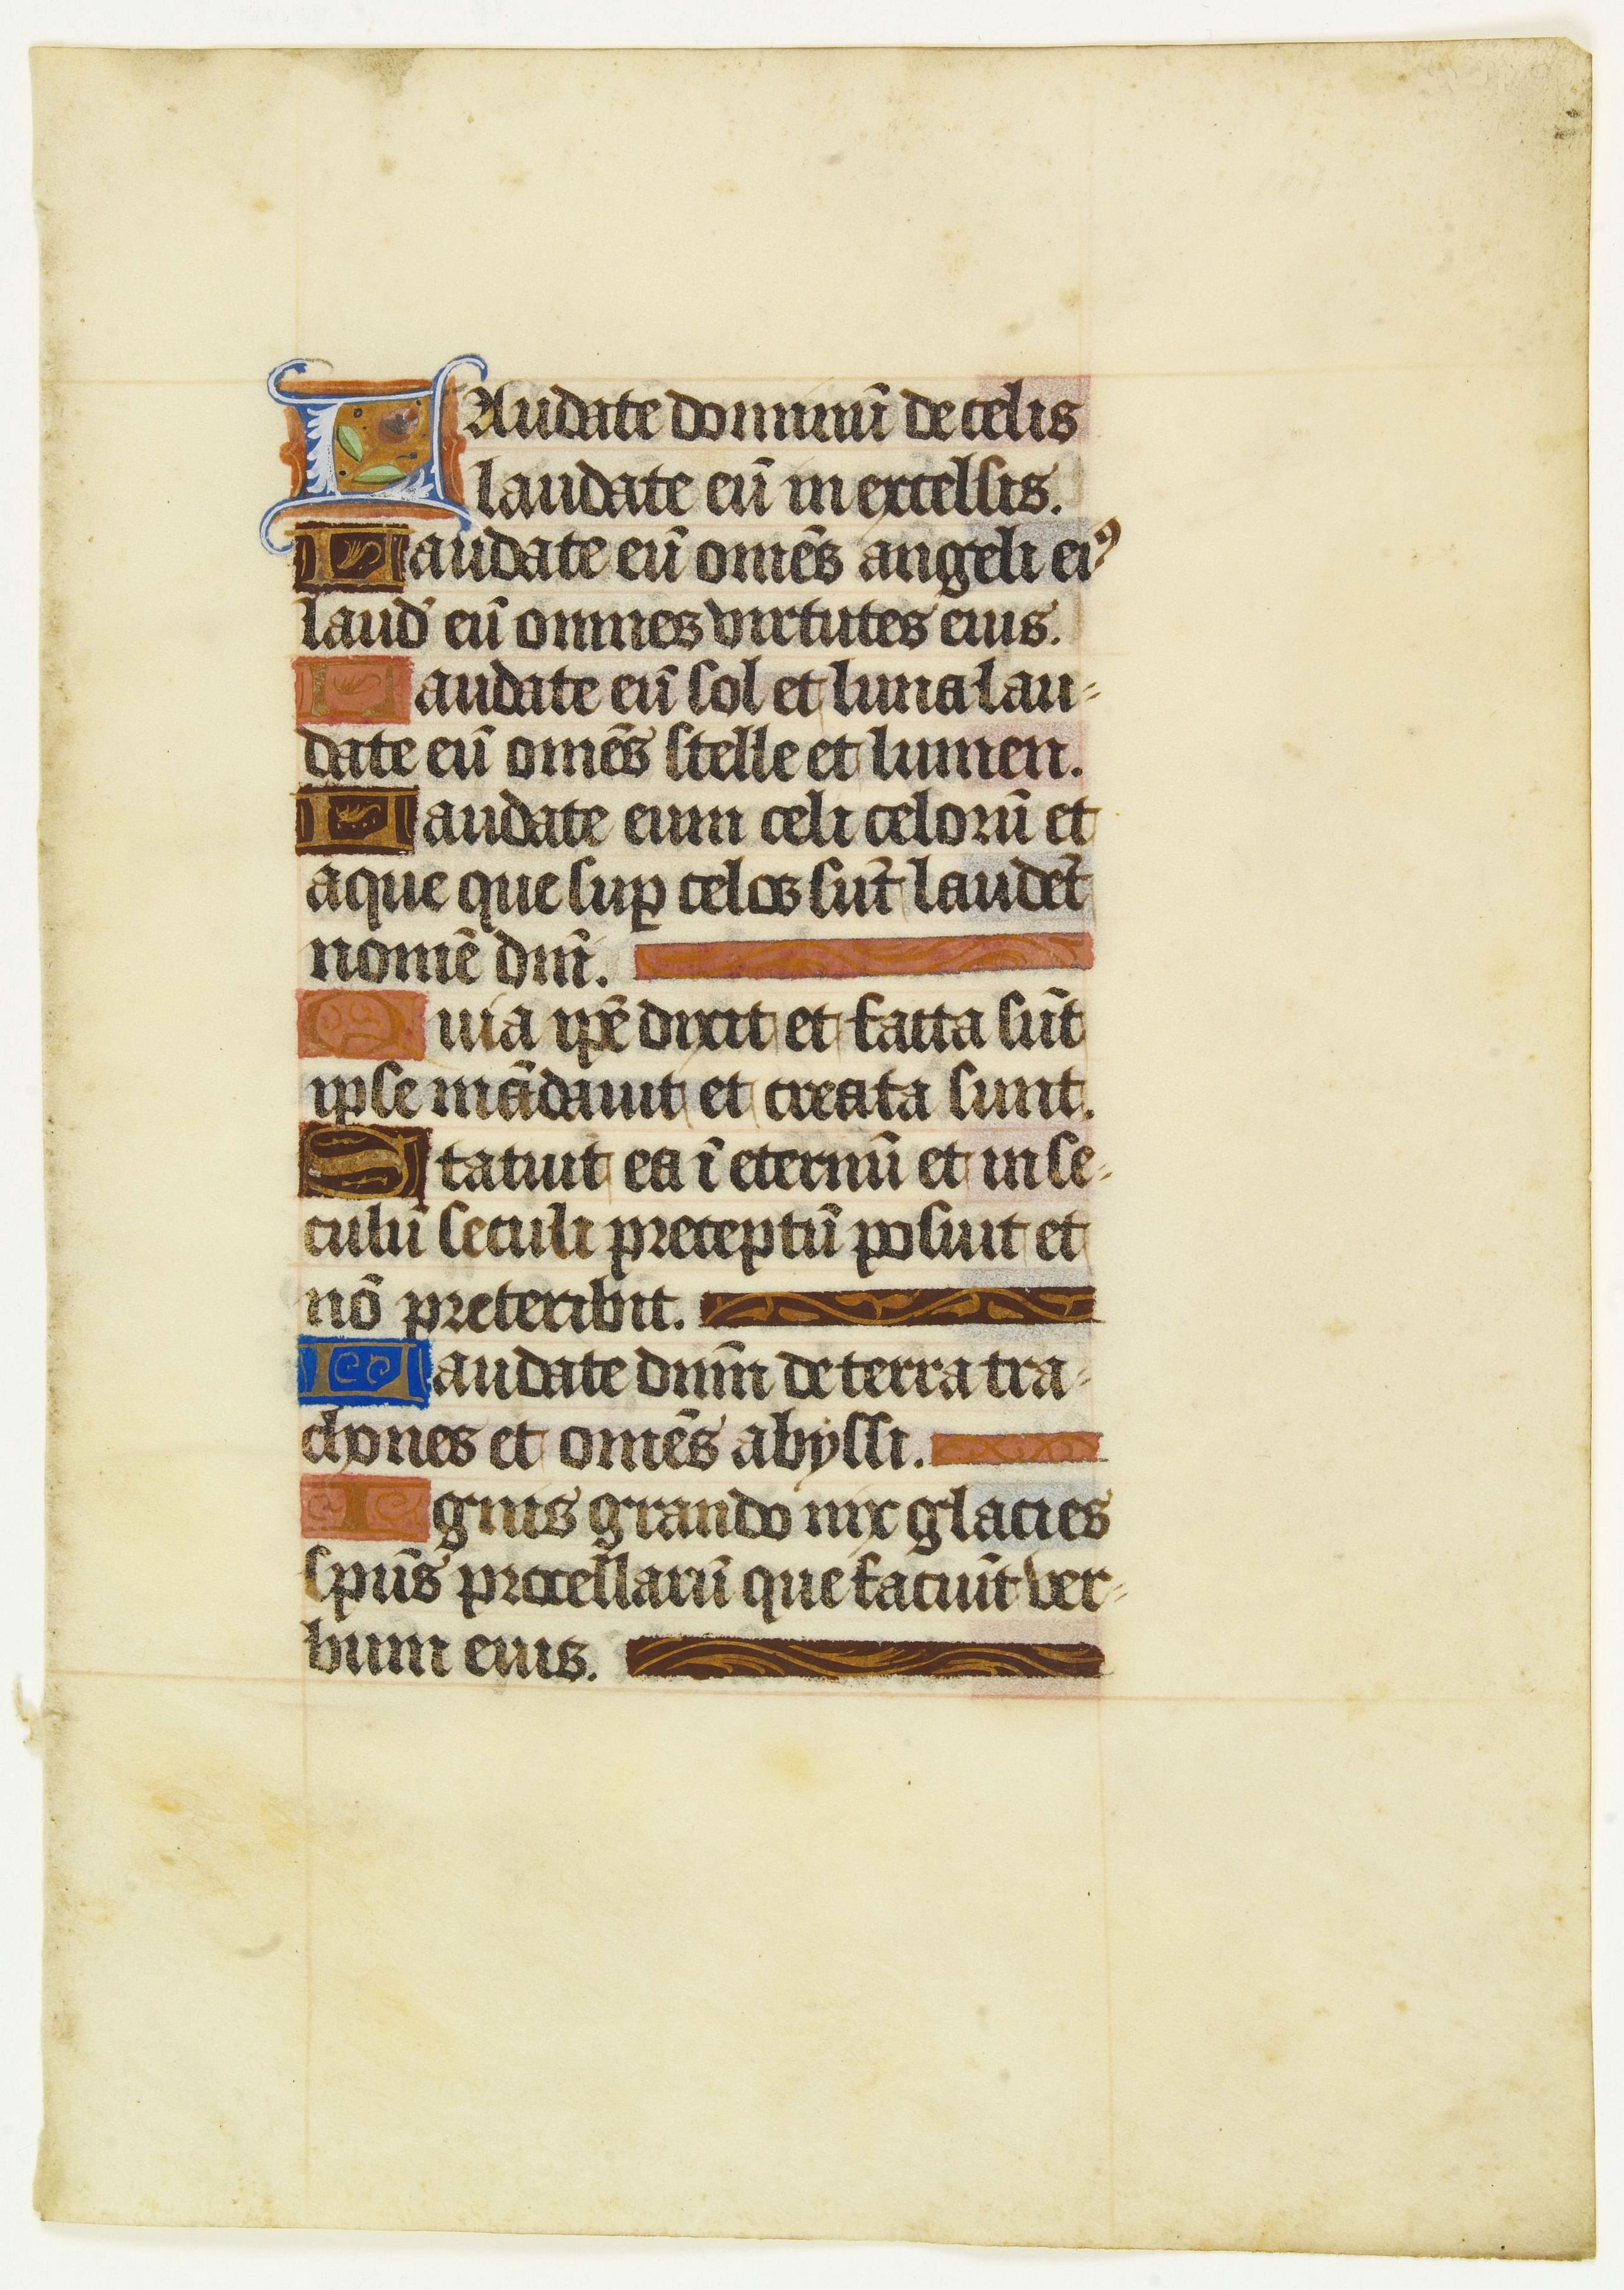 LAudate dominū de celis
laudate eū in excelsis.
Laudate eū om̄es angeli eiꝰ
laud' eū omnes virtutes eius.
Laudate eū sol et luna lau-
date eū om̄es stelle et lumen.
Laudate eum celi celorū et
aque que suꝑ celos sūt laudēt
nomē dn̄i.
Quia ip̄e dixit et facta sūt
ipse mādauit et creata sunt.
Statuit ea ī eternū et in se-
culū seculi preceptū posuit et
nō preteribit.
Laudate dn̄m de terra tra-
chones et om̄es abyssi.
Ignis grando nix glacies
sp̄us procellarū que faciūt ver-
bum eius.